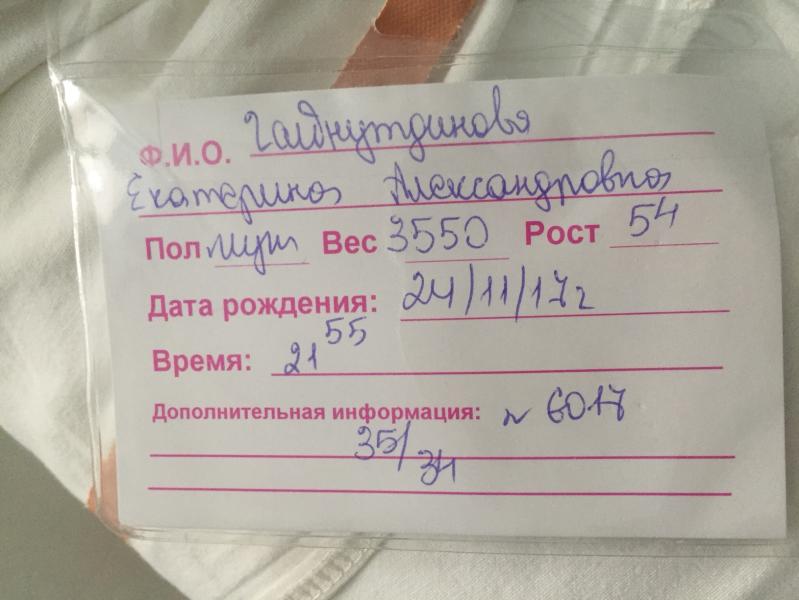 Ф.И.О. Гайнутдинова
Екатерина Александровна
Пол муж Вес 3550 Рост 54
Дата рождения: 24/11/17г
Время: 21 55
Дополнительная информация: N 6017
35/34